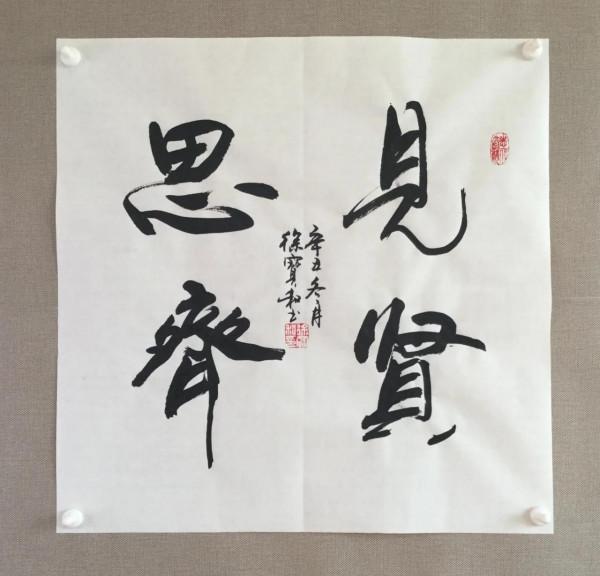 見賢
思齊
辛丑冬月
徐寶和书